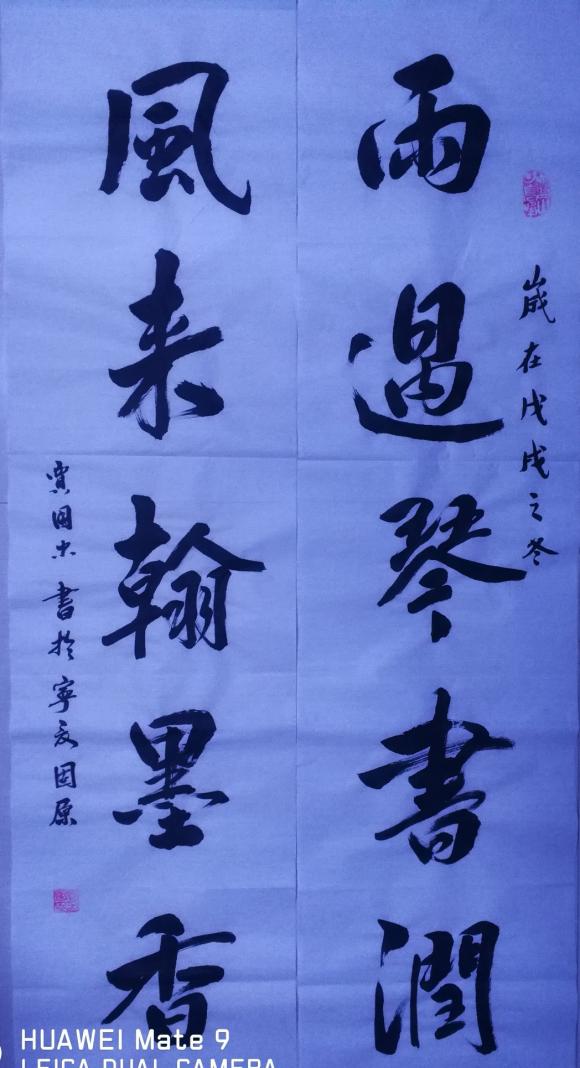 歲在戊戌之冬
雨過琴書潤
風来翰墨香
賈国忠書於寧夏固原
HUAWEI Mate 9
LEICA DUAL CAMERA